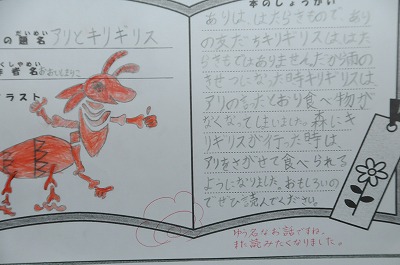 の題名 アリとキリギリス
だいめい
者名
ラスト
本のしょうかい
ありは、はたらきもので、あり
の友だちキリギリスは、はた
らきものではありませんだから雨の
きせつになった時キリギリスは
アリの言ったとおり食べ物が
なくなってしまいました。森にキ
リギリスが行った時は
アリをさがせて食べられる
ようになりました。おもしろいの
でぜひ読んでください。
ゆう名なお話ですね。
また読みたくなりました。